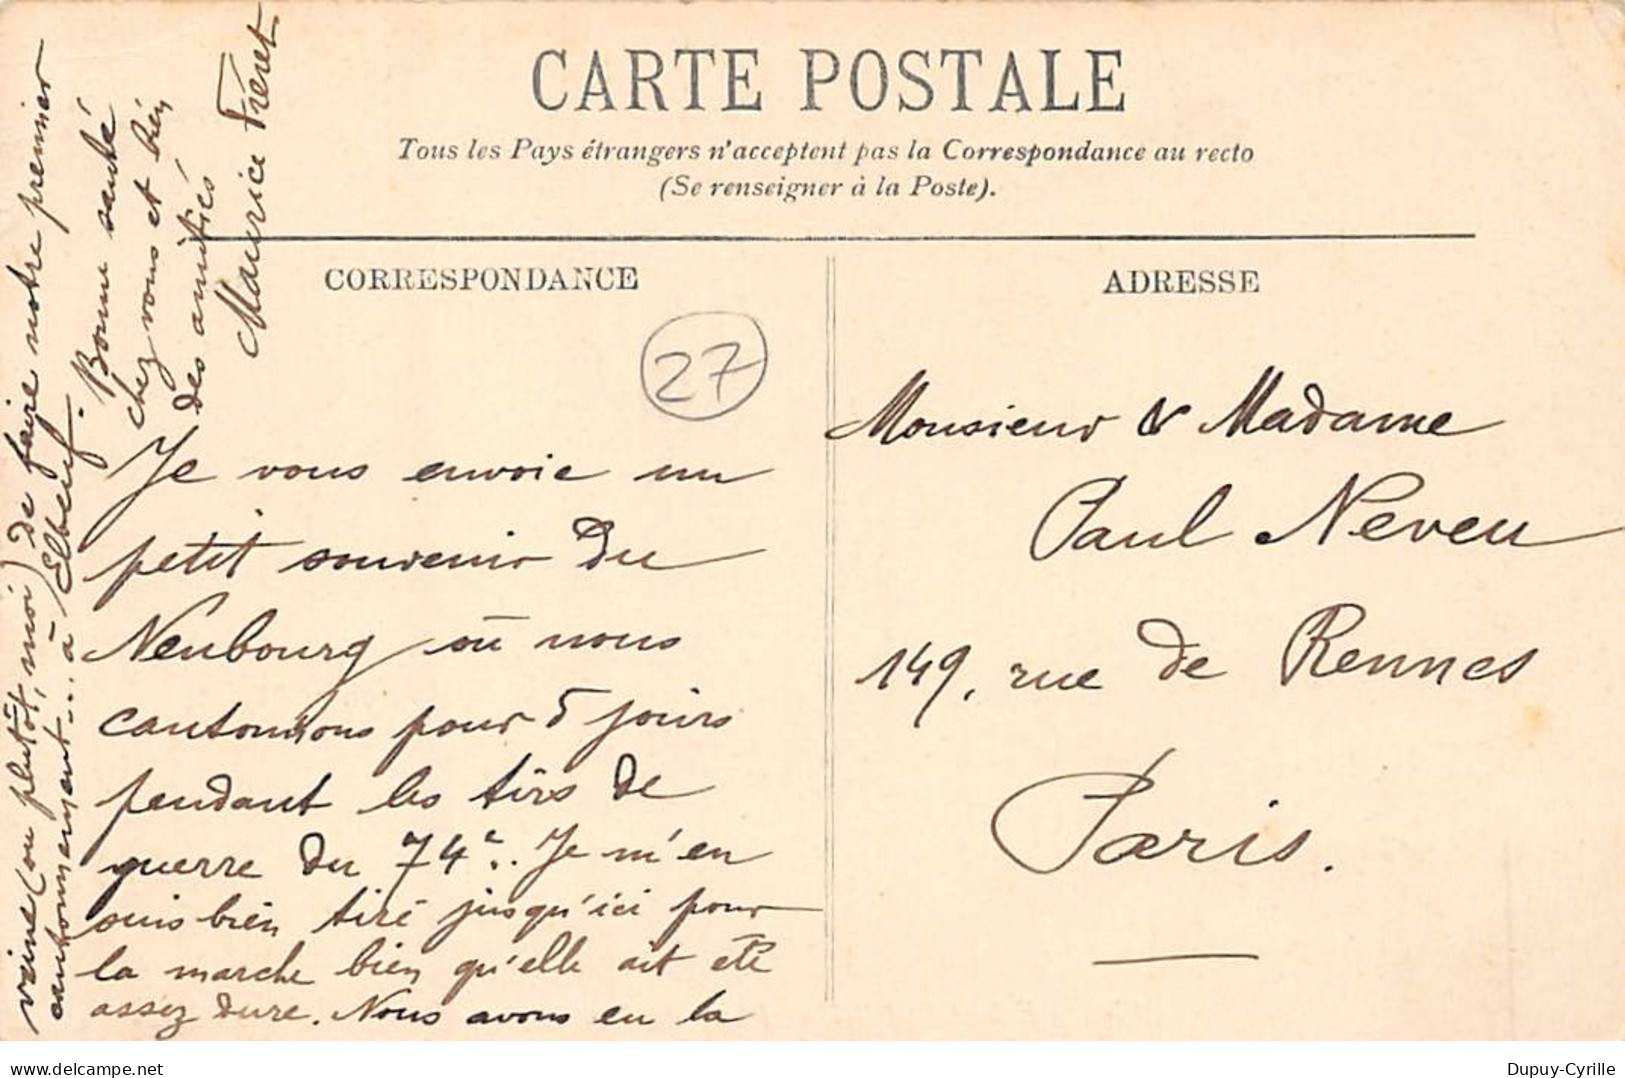 CARTE POSTALE
Tous les Pays étrangers n'acceptent pas la Correspondance au recto
(Se renseigner à la Poste).
CORRESPONDANCE
ADRESSE
27
Je vous envoie un
petit souvenir du
Neubourg où nous
cantonnons pour 5 jours
pendant les tirs de
guerre du 74e. Je m'en
suis bien tiré jusqu'ici pour
la marche bien qu'elle ait été
assez dure. Nous avons eu la
veine (ou plutôt, moi) de faire notre premier
cantonnement... à Elbeuf.
Bonne santé
chez vous et bien
des amitiés
Maurice Féret
Monsieur & Madame
Paul Neveu
149, rue de Rennes
Paris.
www.delcampe.net
Dupuy-Cyrille